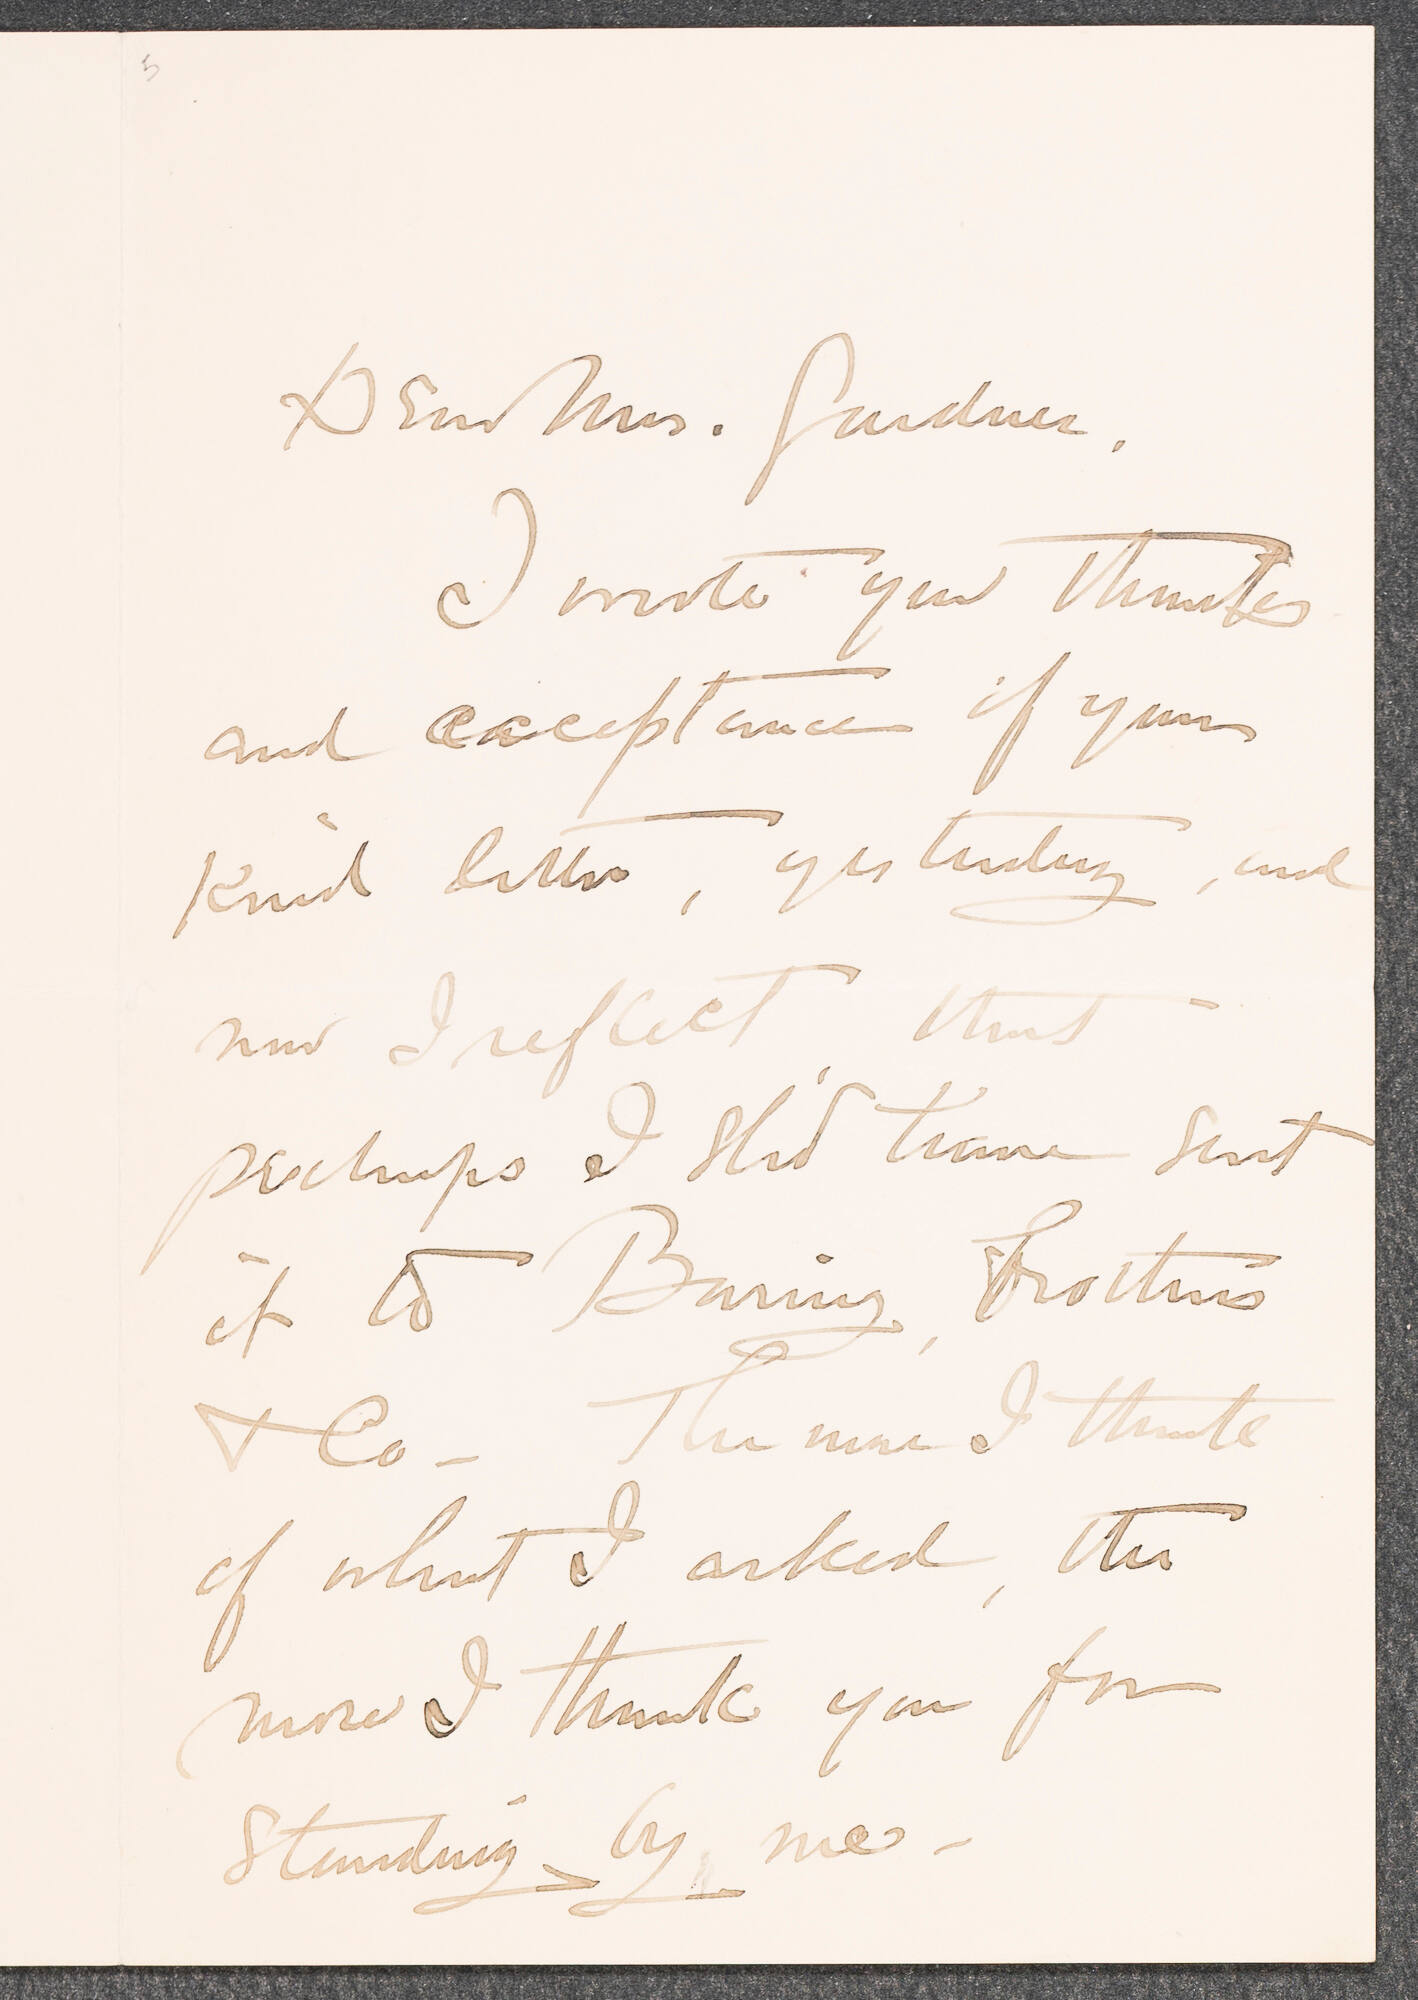 5
Dear Mrs. Gardner.
I wrote you thanks
and acceptance of your
kind letter, yesterday, and
now I reflect that
perhaps I sh'd have sent
it to Baring, Brothers
& Co - The more I think
of what I asked, the
more I thank you for
standing by me -